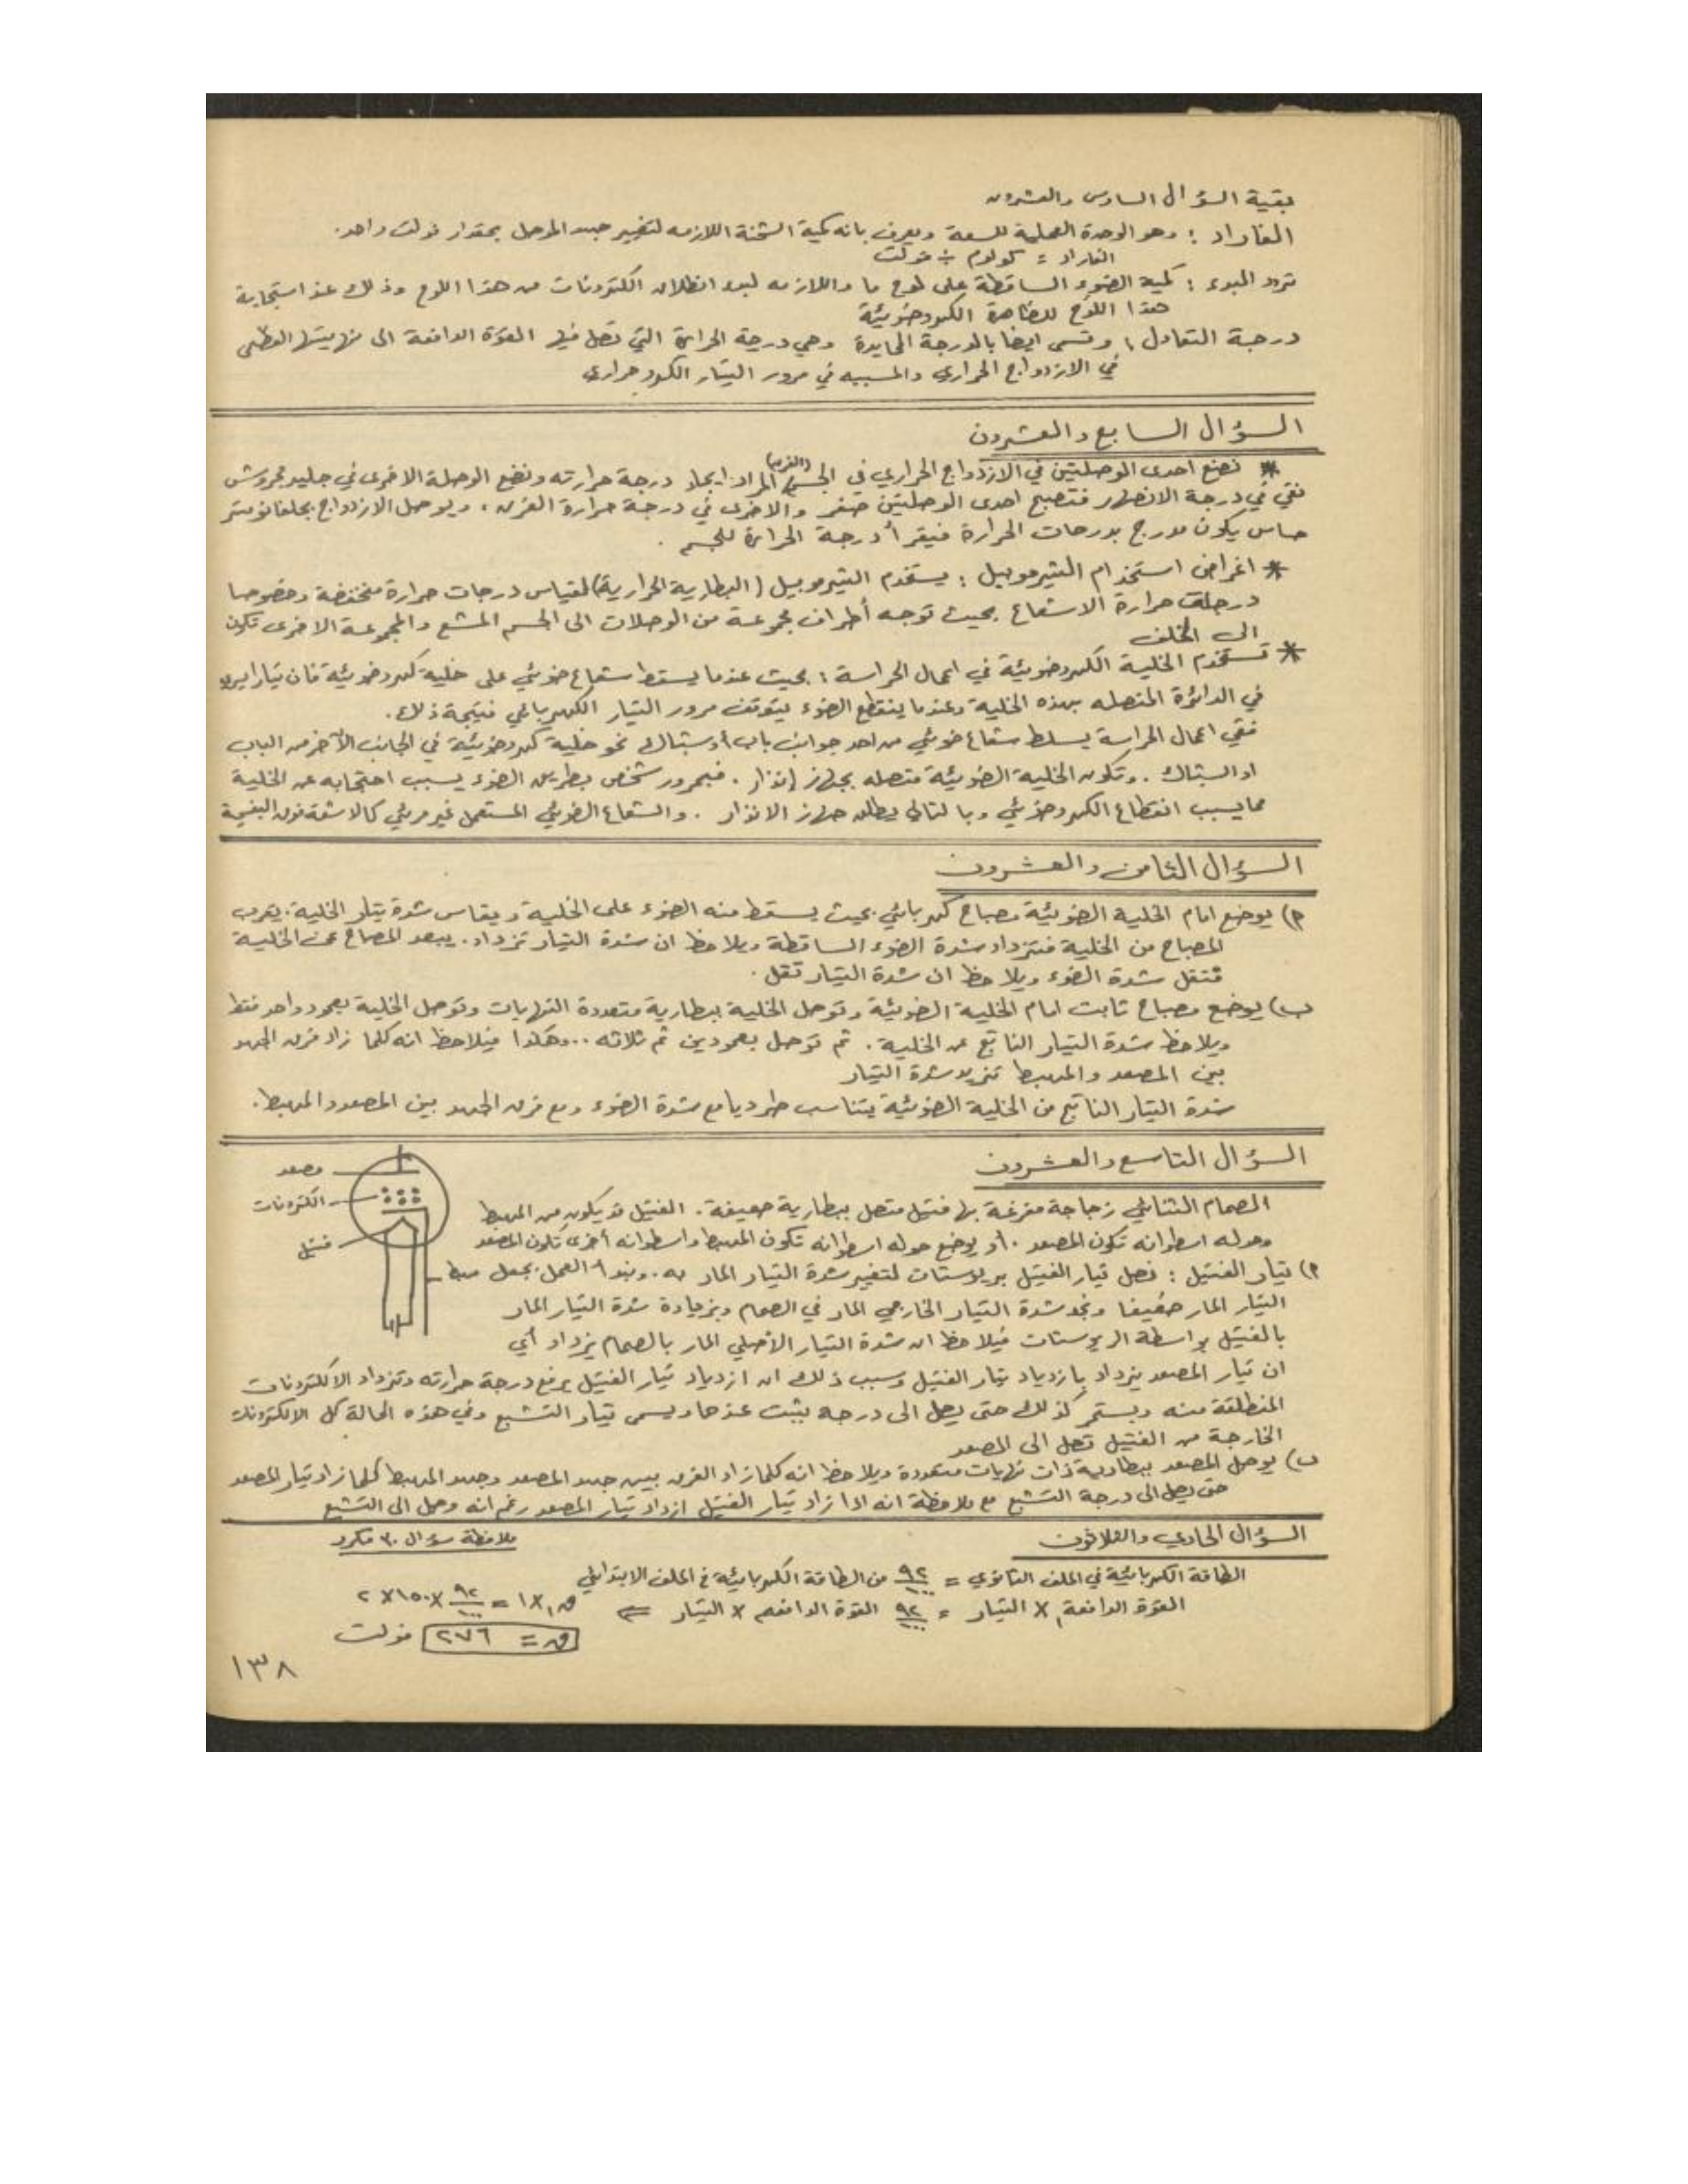 بقية السؤال السادس والعشرون
الفاراد : وهو الوحدة العملية للسعة ويعرف بانه كمية الشحنة اللازمه لتغيير جهد الموصل بمقدار فولت واحد.
الفاراد = كولوم ÷ فولت
تردد البدء : كمية الضوء الساقطة على لوح ما واللازمه لبدء انطلاق الكترونات من هذا اللوح وذلك عند استجابة
هذا اللوح للظاهرة الكهروضوئية
درجة التعادل : وتسمى ايضا بالدرجة المحايدة وهي درجة الحرارة التي تصل فيها القوة الدافعة الى نهايتها العظمى
في الازدواج الحراري والمسببه في مرور التيار الكهروحراري
السؤال السابع والعشرون
* نضع احدى الوصلتين في الازدواج الحراري في الجسم (الفرن) المراد ايجاد درجة حرارته ونضع الوصلة الاخرى في جليد مجروش
نقي في درجة الانصهار فتصبح احدى الوصلتين صفر والاخرى في درجة حرارة الفرن ، ويوصل الازدواج بجلفانومتر
حساس يكون مدرج بدرجات الحرارة فيقرأ درجة الحرارة للجسم .
* اغراض استخدام الثيرموبيل : يستخدم الثيرموبيل (البطارية الحرارية) لقياس درجات حرارة منخفضة وخصوصا
درجات حرارة الاشعاع بحيث توجه أطراف مجموعة من الوصلات الى الجسم المشع والمجموعة الاخرى تكون
الى الخلف
* تستخدم الخلية الكهروضوئية في اعمال الحراسة : بحيث عندما يسقط شعاع ضوئي على خلية كهروضوئية فان تيارا يسري
في الدائرة المتصله بهذه الخلية وعندما ينقطع الضوء يتوقف مرور التيار الكهربائي نتيجة ذلك.
ففي اعمال الحراسة يسلط شعاع ضوئي من احد جوانب باب أو شباك نحو خلية كهروضوئية في الجانب الآخر من الباب
او الشباك . وتكون الخلية الضوئية متصله بجهاز إنذار . فبمرور شخص بطريق الضوء يسبب احتجابه عن الخلية
مما يسبب انقطاع الكهروضوئي وبالتالي يطلق جهاز الانذار . والشعاع الضوئي المستعمل غير مرئي كالاشعة فوق البنفسجية
السؤال الثامن والعشرون
أ) يوضع امام الخلية الضوئية مصباح كهربائي بحيث يسقط منه الضوء على الخلية ويقاس شدة تيار الخلية. يقرب
المصباح من الخلية فتزداد شدة الضوء الساقطة ويلاحظ ان شدة التيار تزداد. يبعد المصباح عن الخلية
فتقل شدة الضوء ويلاحظ ان شدة التيار تقل .
ب) يوضع مصباح ثابت امام الخلية الضوئية وتوصل الخلية ببطارية متعددة النهايات وتوصل الخلية بعمود واحد فقط
ويلاحظ شدة التيار الناتج عن الخلية . ثم توصل بعمودين ثم ثلاثه ... وهكذا فيلاحظ انه كلما زاد فرق الجهد
بين المصعد والمهبط تزيد شدة التيار
شدة التيار الناتج من الخلية الضوئية يتناسب طرديا مع شدة الضوء ومع فرق الجهد بين المصعد والمهبط.
السؤال التاسع والعشرون
مصعد
الكترونات
فتيل
مهبط
الصمام الثنائي زجاجة مفرغة بها فتيل متصل ببطارية ضعيفة . الفتيل قد يكون من المهبط
وحوله اسطوانه تكون المصعد . أو يوضع حوله اسطوانه تكون المهبط واسطوانه أخرى تكون المصعد
أ) تيار الفتيل : نصل تيار الفتيل بريوستات لتغيير شدة التيار المار به . ونبدأ العمل بجعل
التيار المار ضعيفا ونجد شدة التيار الخارجي المار في الصمام وبزيادة شدة التيار المار
بالفتيل بواسطة الريوستات فيلاحظ ان شدة التيار الأصلي المار بالصمام يزداد أي
ان تيار المصعد يزداد بازدياد تيار الفتيل وسبب ذلك ان ازدياد تيار الفتيل يرفع درجة حرارته وتزداد الالكترونات
المنطلقة منه ويستمر كذلك حتى يصل الى درجه يثبت عندها ويسمى تيار التشبع وفي هذه الحالة كل الالكترونات
الخارجة من الفتيل تصل الى المصعد
ب) يوصل المصعد ببطارية ذات نهايات متعددة ويلاحظ انه كلما زاد الفرق بين جهد المصعد وجهد المهبط كلما زاد تيار المصعد
حتى يصل الى درجة التشبع مع ملاحظة انه اذا زاد تيار الفتيل ازداد تيار المصعد رغم انه وصل الى التشبع
السؤال الحادي والثلاثون
ملاحظة سؤال ٣٠ مكرر
الطاقة الكهربائية في الملف الثانوي = ٩٢/١٠٠ من الطاقة الكهربائية في الملف الابتدائي
القوة الدافعة١ × التيار١ = ٩٢/١٠٠ القوة الدافعه × التيار ⇐ ق١ × ١ = ٩٢/١٠٠ × ١٥٠ × ٢
ق = ٢٧٦ فولت
١٣٨